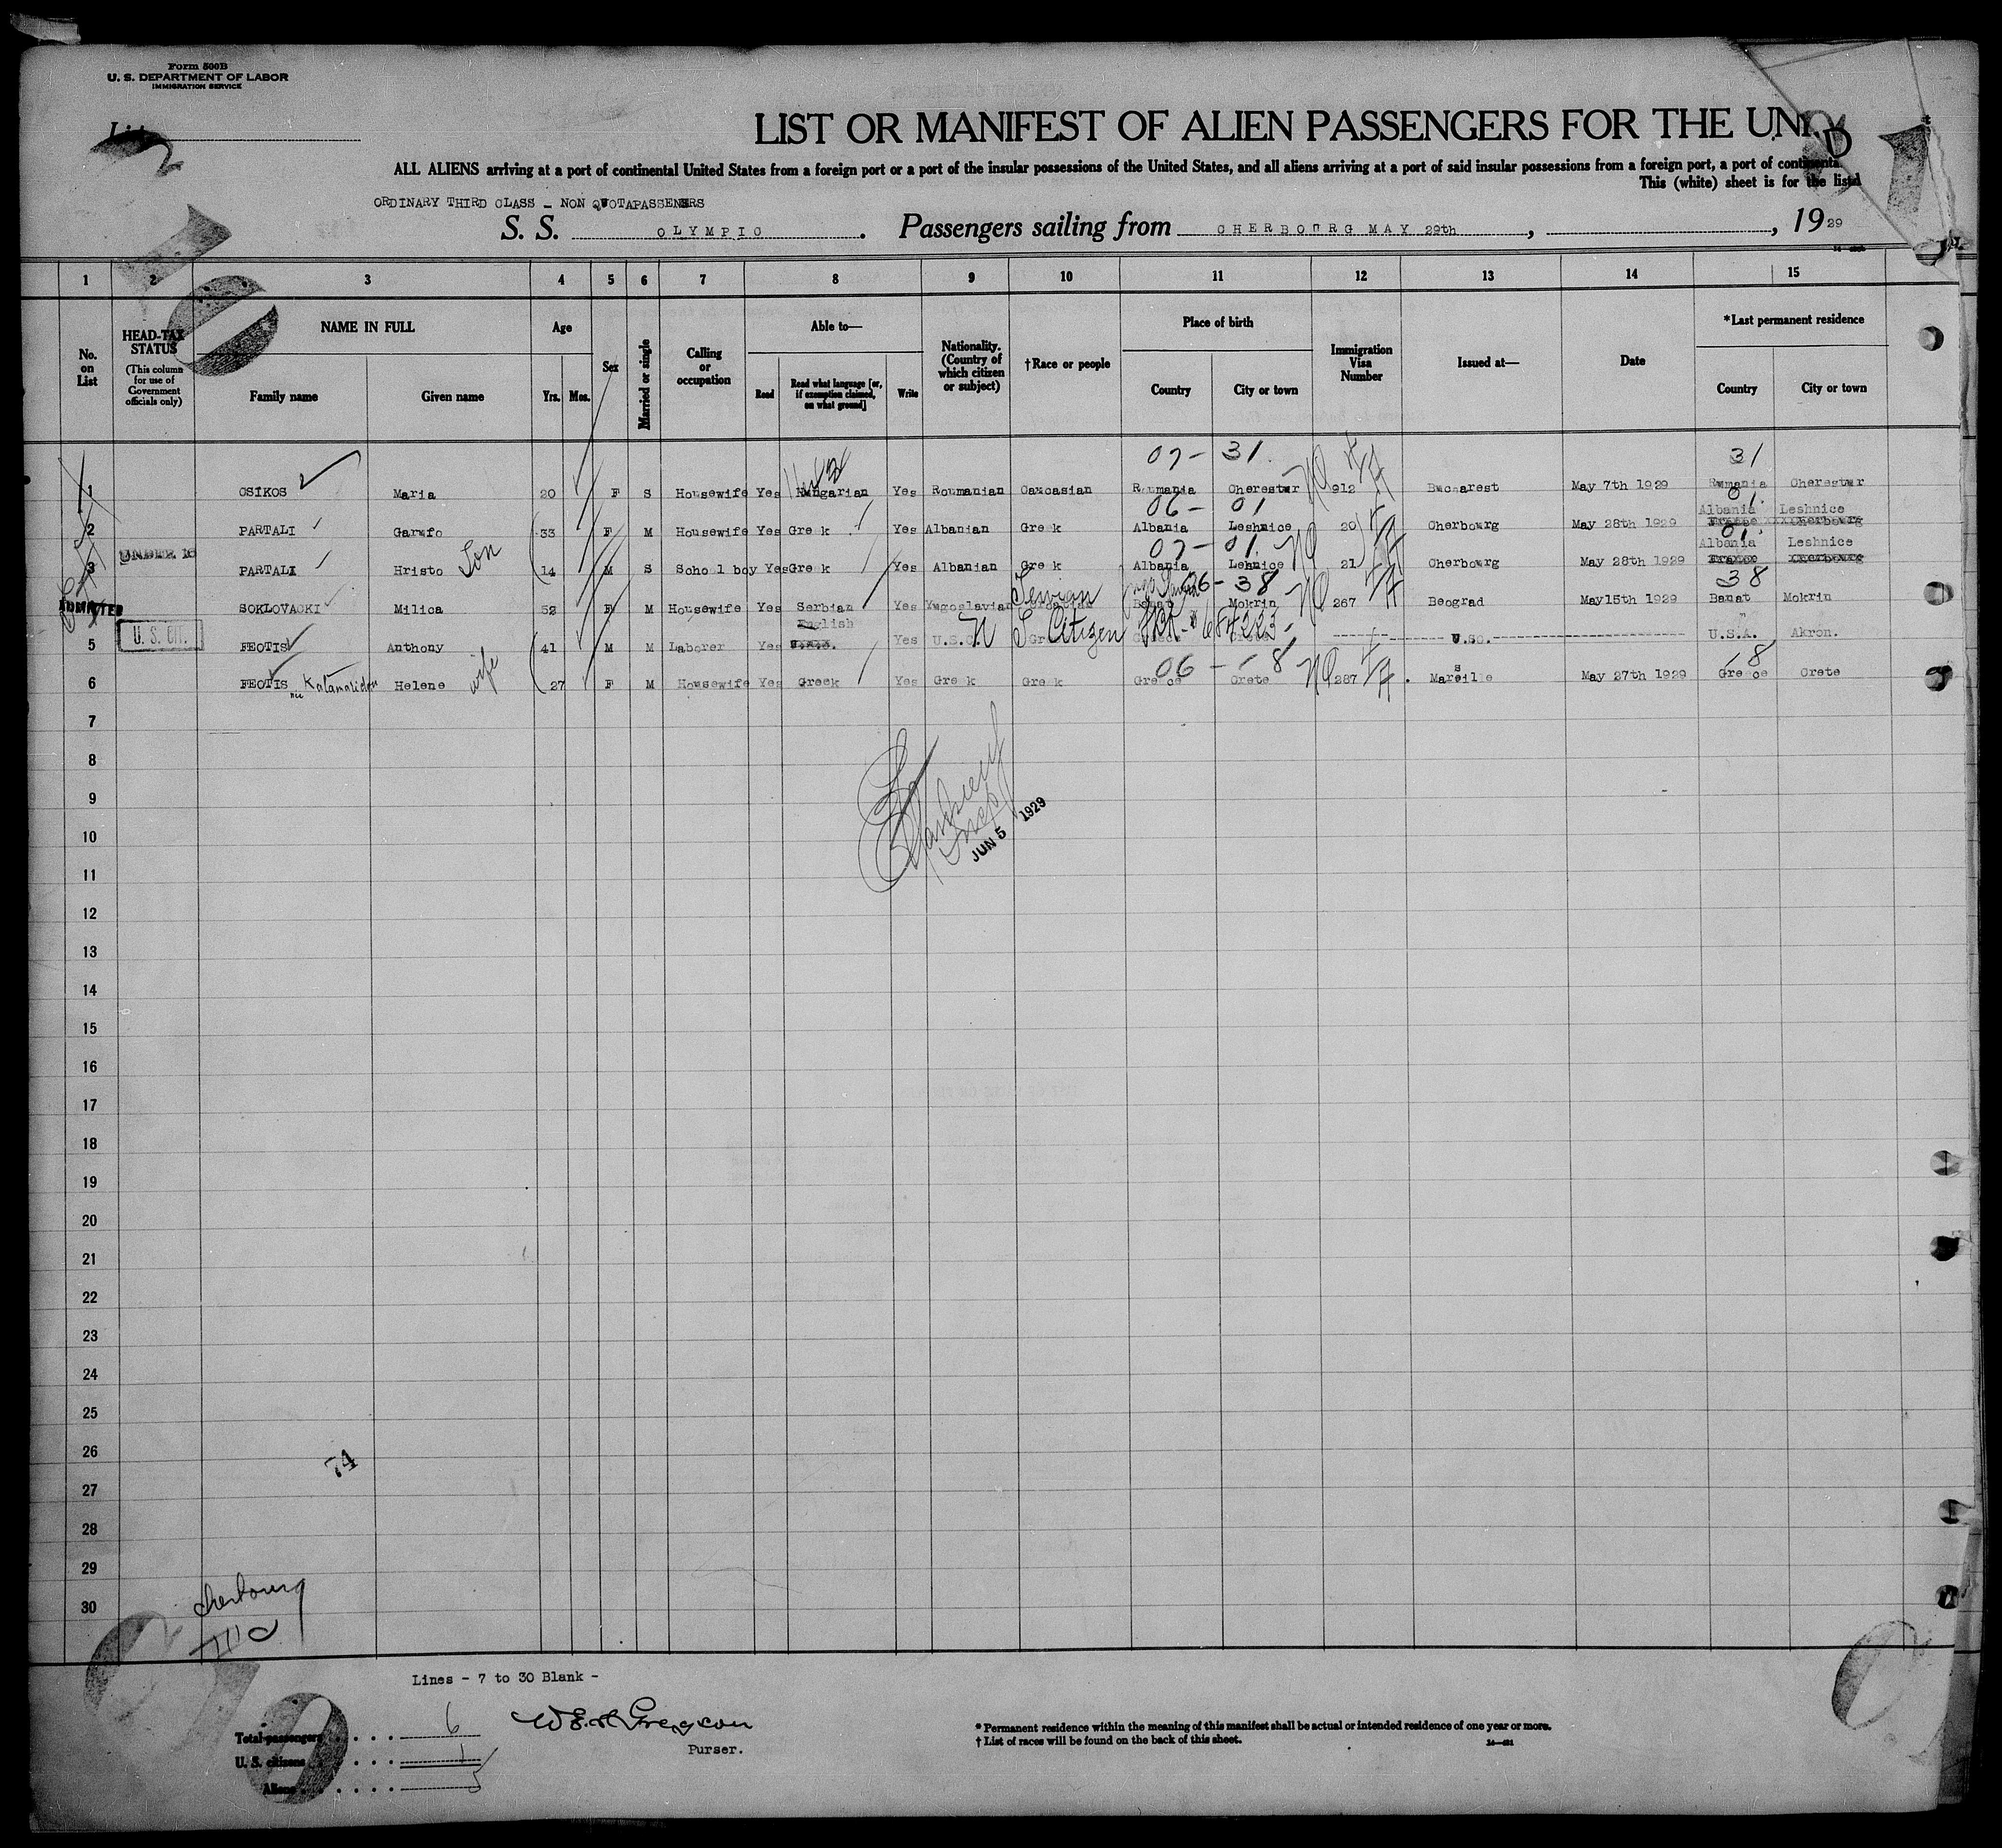 Form 500B
U. S. DEPARTMENT OF LABOR
IMMIGRATION SERVICE
List
LIST OR MANIFEST OF ALIEN PASSENGERS FOR THE UNI D
ALL ALIENS arriving at a port of continental United States from a foreign port or a port of the insular possessions of the United States, and all aliens arriving at a port of said insular possessions from a foreign port, a port of continenta
This (white) sheet is for the listi
ORDINARY THIRD CLASS - NON QUOTAPASSENERS
S. S. OLYMPIC. Passengers sailing from CHERBOURG MAY 29th, , 1929
1 2 3 4 5 6 7 8 9 10 11 12 13 14 15
No. on List
HEAD-TAX STATUS
(This column for use of Government officials only)
NAME IN FULL
Family name Given name
Age
Yrs. Mos.
Sex
Married or single
Calling or occupation
Able to—
Read
Read what language [or, if exemption claimed, on what ground]
Write
Nationality. (Country of which citizen or subject)
†Race or people
Place of birth
Country City or town
Immigration Visa Number
Issued at—
Date
*Last permanent residence
Country City or town
07- 31. 31
1 OSIKOS Maria 20 F S Housewife Yes Hungarian Yes Roumanian Caucasian Roumania Cherestur 912 Bucarest May 7th 1929 Rumania Cherestur
06- 01 01.
Albania Leshnice
2 PARTALI Garufo 33 F M Housewife Yes Greek Yes Albanian Greek Albania Leshnice 20 Cherbourg May 28th 1929 France Cherbourg
07- 01. 01.
UNDER 16 Son Albania Leshnice
3 PARTALI Hristo 14 M S School boy Yes Greek Yes Albanian Greek Albania Lehnice 21 Cherbourg May 28th 1929 France Cherbourg
06- 38 38
ADMITTED SOKLOVACKI Milica 52 F M Housewife Yes Serbian Yes Yugoslavian Banat Mokrin 267 Beograd May15th 1929 Banat Mokrin
U. S. CIT. English
5 FEOTIS Anthony 41 M M Laborer Yes Yes U.S.C. Citizen U.S.A. Akron.
06- wife
6 FEOTIS Helene 27 F M Housewife Yes Greek Yes Greek Greek Greece Crete 287 Marseille May 27th 1929 Greece Crete
7
8
9
JUN 5 1929
10
11
12
13
14
15
16
17
18
19
20
21
22
23
24
25
26
74
27
28
29
30
Cherbourg
Lines - 7 to 30 Blank -
Total passengers 6
Purser.
U. S. citizens 1
Aliens 5
* Permanent residence within the meaning of this manifest shall be actual or intended residence of one year or more.
† List of races will be found on the back of this sheet.